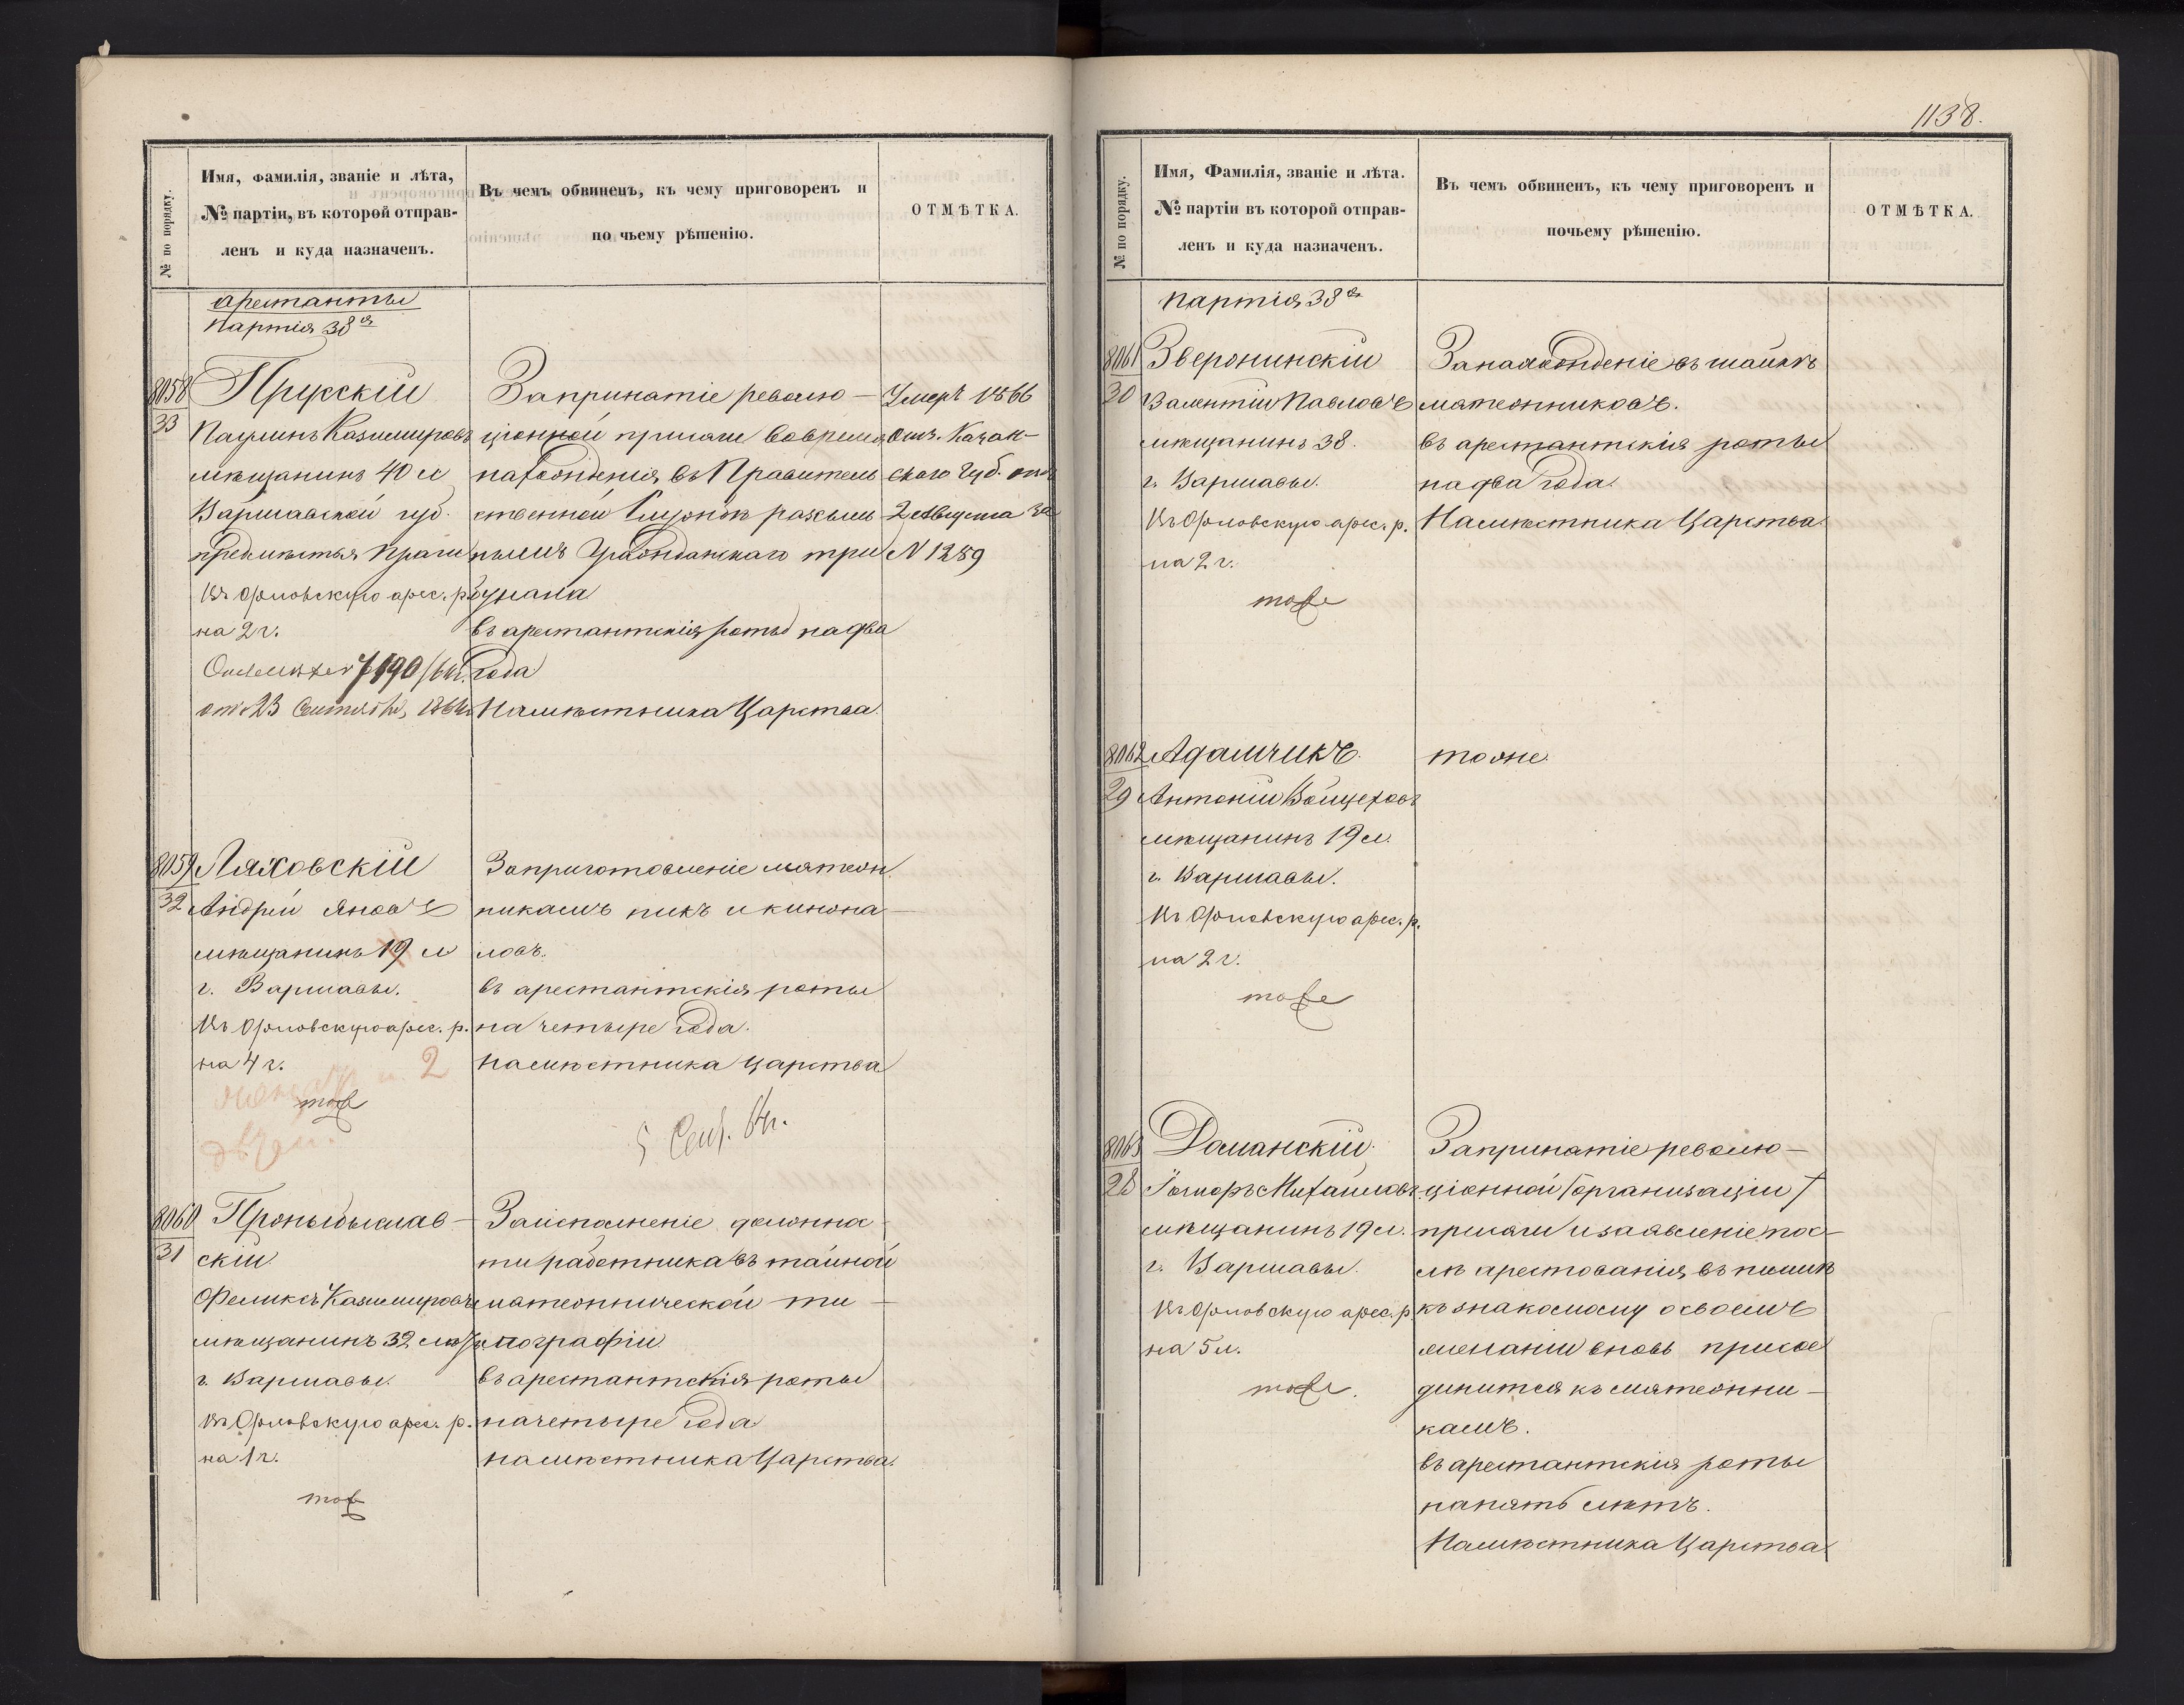 № по порядку.
Имя, Фамилія, званіе и лѣта,
№ партіи, въ которой отправ-
ленъ и куда назначенъ.
Въ чемъ обвиненъ, къ чему приговоренъ и
по чьему рѣшенію.
ОТМѢТКА.
арестанты
партія 38я
8058
33
Прусскій
Паулинъ Казимировъ
мѣщанинъ 40 л
Варшавской губ.
предмѣстья Праги
Въ Орловскую арес. р.
на 2 г.
7190/64.
от 23 Сентября, 1864
За принятіе револю-
ціонной присяги во время
нахожденія въ Правитель
ственной службѣ разсыль
нымъ Гражданскаго три
бунала
въ арестантскія роты на два
года
Намѣстника Царства.
Умеръ 1866
Отн. Казан-
скаго Губ. отъ
2 Августа за
N 1289
8059
32
Ляховскій
Андрей Яновъ
мѣщанинъ 19 л
г. Варшавы.
Въ Орловскую арес. р.
на 4 г.
2
тоже
За приготовленіе мятеж
никамъ пикъ и кинжа-
ловъ.
въ арестантскія роты
на четыре года.
намѣстника царства
5 Сент. 64 г.
8060
31
Проныбыслав-
скій
Феликсъ Казимировъ
мѣщанинъ 32 лѣтъ
г. Варшавы.
Въ Орловскую арес. р.
на 4 г.
тоже
За исполненіе должно-
ти работника въ тайной
мятежнической ти-
пографіи
въ арестантскія роты
на четыре года
намѣстника Царства.
1138.
№ по порядку.
Имя, Фамилія, званіе и лѣта.
№ партіи въ которой отправ-
ленъ и куда назначенъ.
Въ чемъ обвиненъ, къ чему приговоренъ и
почьему рѣшенію.
ОТМѢТКА.
партія 38я
8061
30
Зверонинскій
Валентій Павловъ
мѣщанинъ 38.
г. Варшавы.
Въ Орловскую арес. р.
на 2 г.
тоже
За нахожденіе въ шайкѣ
мятежниковъ.
въ арестантскія роты
на два года.
Намѣстника Царства
8062
29
Адамчикъ.
Антоній Войцеховъ
мѣщанинъ 19 л.
г. Варшавы.
Въ Орловскую арес. р.
на 2 г.
тоже
тоже
8063
28
Доманскій
Михайловъ
мѣщанинъ 19 л.
г. Варшавы.
Въ Орловскую арес. р.
на 5 л.
тоже.
За принятіе револю-
ціонной /организаціи/
присяги и заявленіе пос-
лѣ арестованія, въ письмѣ
къ знакомому о своемъ
желаніи вновь присое
динится къ мятежни-
камъ.
въ арестантскія роты
на пять лѣтъ.
Намѣстника Царства